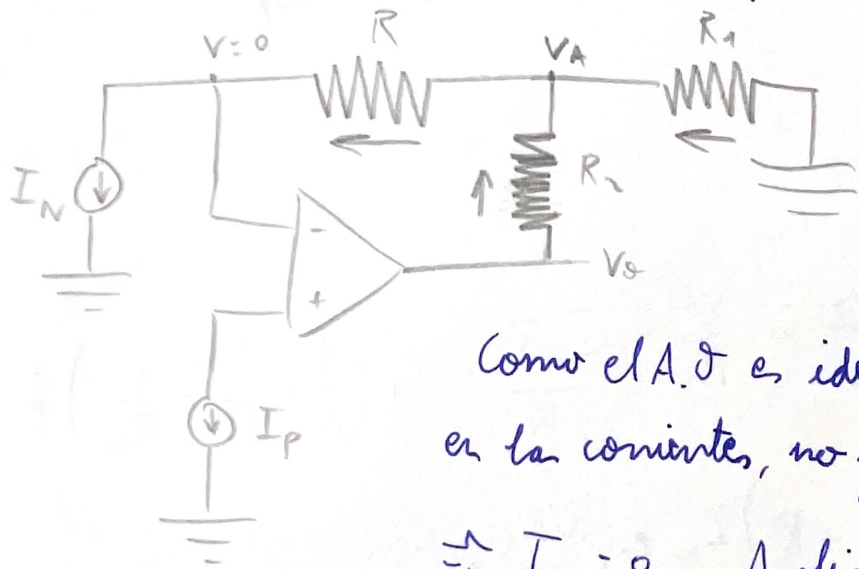 V=0
R
VA
R1
IN
R2
-
+
Vo
IP
Como el A.O es
en las corrientes, no
⇒ I = 0